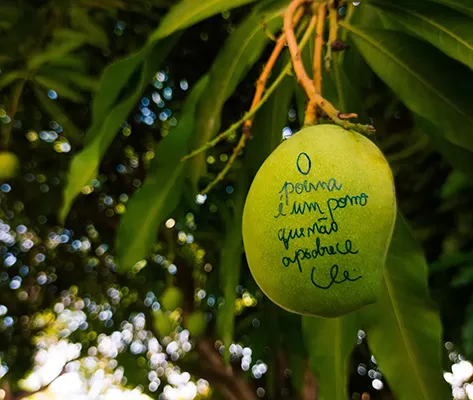 O
poema
é um pomo
que não
apodrece